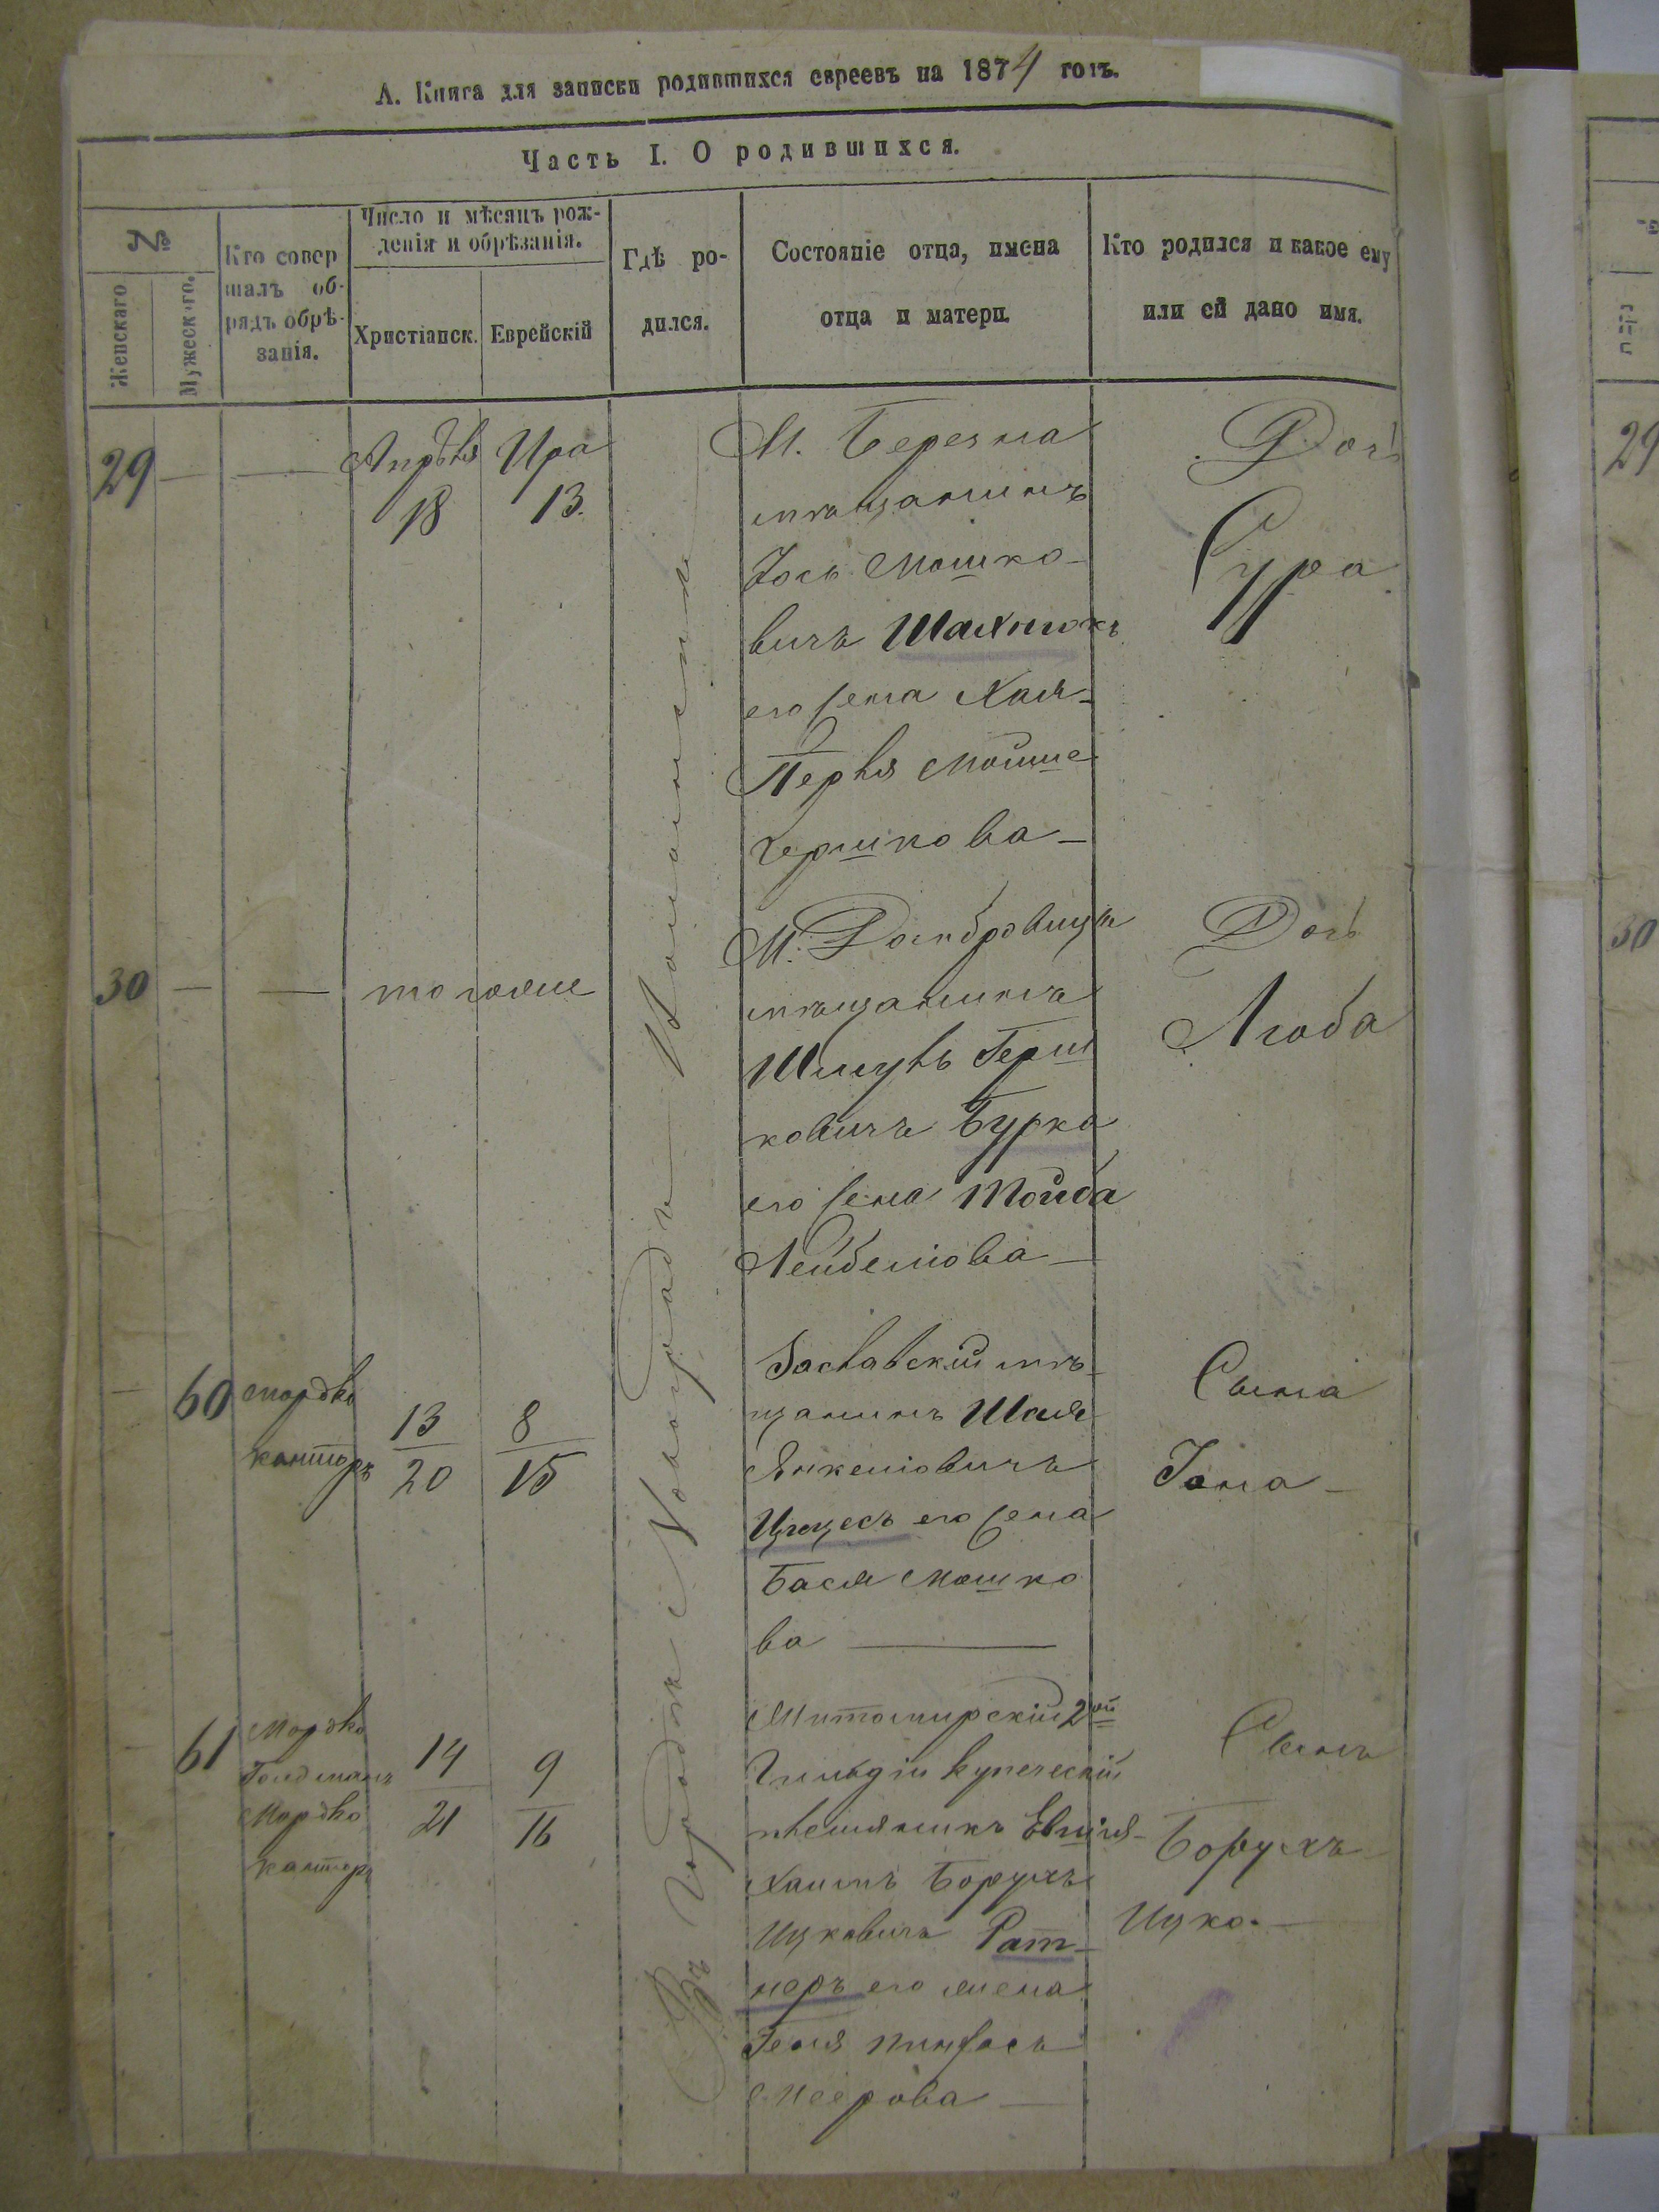 А. Книга для записки родившихся евреевъ на 1874 годъ.
Часть I. О родившихся.
№
Женскаго
Мужескаго.
Кто совер
шалъ об-
рядъ обрѣ-
занія.
Число и мѣсяцъ рож-
денія и обрѣзанія.
Христіанск.
Еврейскій
Гдѣ ро-
дился.
Состояніе отца, имена
отца и матери.
Кто родился и какое ему
или ей дано имя.
Въ Городѣ
29
Апрѣля
18
Ира
13.
М. Березна
мѣщанинъ
Іось Мошко-
вичъ Шахнюкъ
его жена Хая-
Перля Мойше
Гершкова
Дочь
Сура
30
тогоже
М. Домбровицы
мѣщанинъ
Шмуль Герш
ковичъ Бурко
его жена Тойба
Лейбеліова
Дочь
Люба
60
Мордко
Канторъ
13
20
8
15
Заславскій мѣ-
щанинъ Шая
Янкеліовичъ
его жена
Бася Мошко
ва
Сынъ
Іона
61
Мордко
Гольдманъ
Мордко
Канторъ
14
21
9
16
Житомирскій 2ой
Гильдіи купеческій
племянникъ
Хаимъ Борухъ
Ицковичъ Рат-
неръ его жена
Геня Пинхасъ
Меерова
Сынъ
Борухъ
Ицко.
29
30